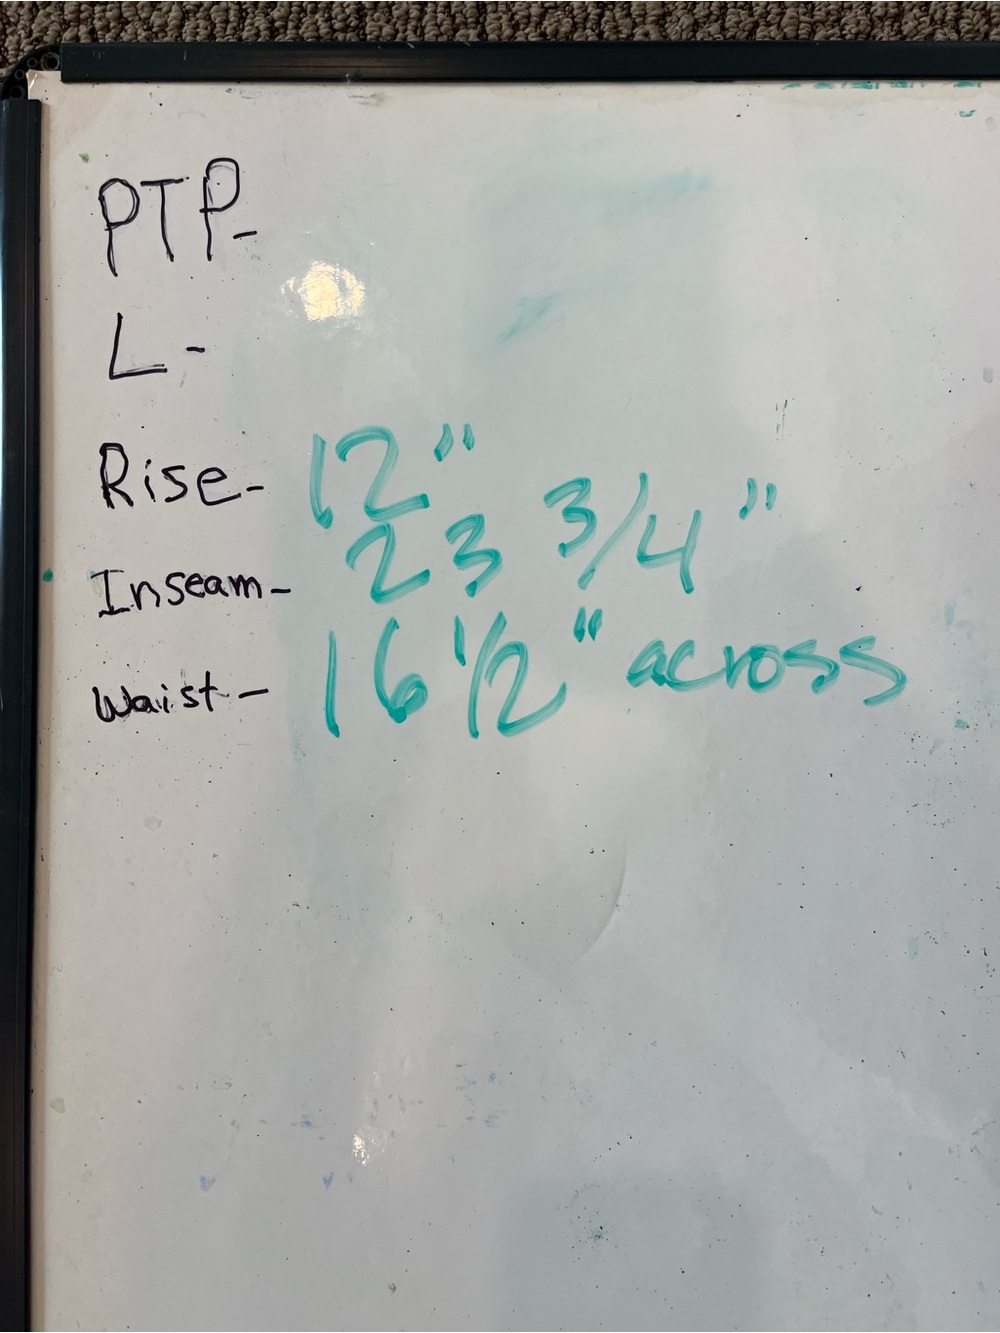 PTP-
L -
Rise- 12"
Inseam- 23 3/4"
Waist- 16 1/2" across